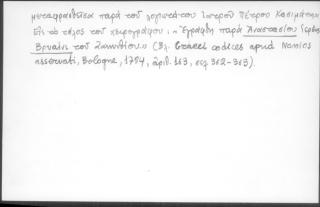 μεταφρασθεῖσα παρὰ τοῦ λογιωτάτου ἰατροῦ Πέτρου Κασιμάτη
Εἰς τὸ τέλος τοῦ χειρογράφου: «Ἐγράφη παρὰ Ἀναστασίου ἱερέως
τοῦ Ζακυνθίου» (Βλ. Graeci codices apud Nanios
asservati, Bologna, 1784, ἀριθ. 163, σελ 362-363).